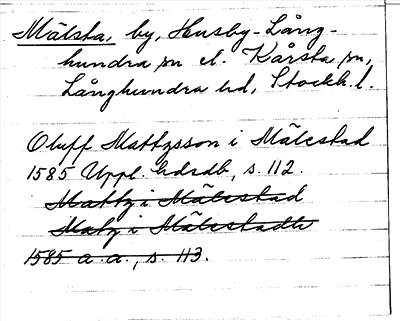 Mälsta, by, Husby-Lång-
hundra sn el. Kårsta sn,
Långhundra hd, Stockh. l.
Oluff Mattzsson i Mälestad
1585 Uppl. hdrdb, s. 112.
Mattz i Mälestad
Matz i Mälestadh
1585 a.a., s. 113.